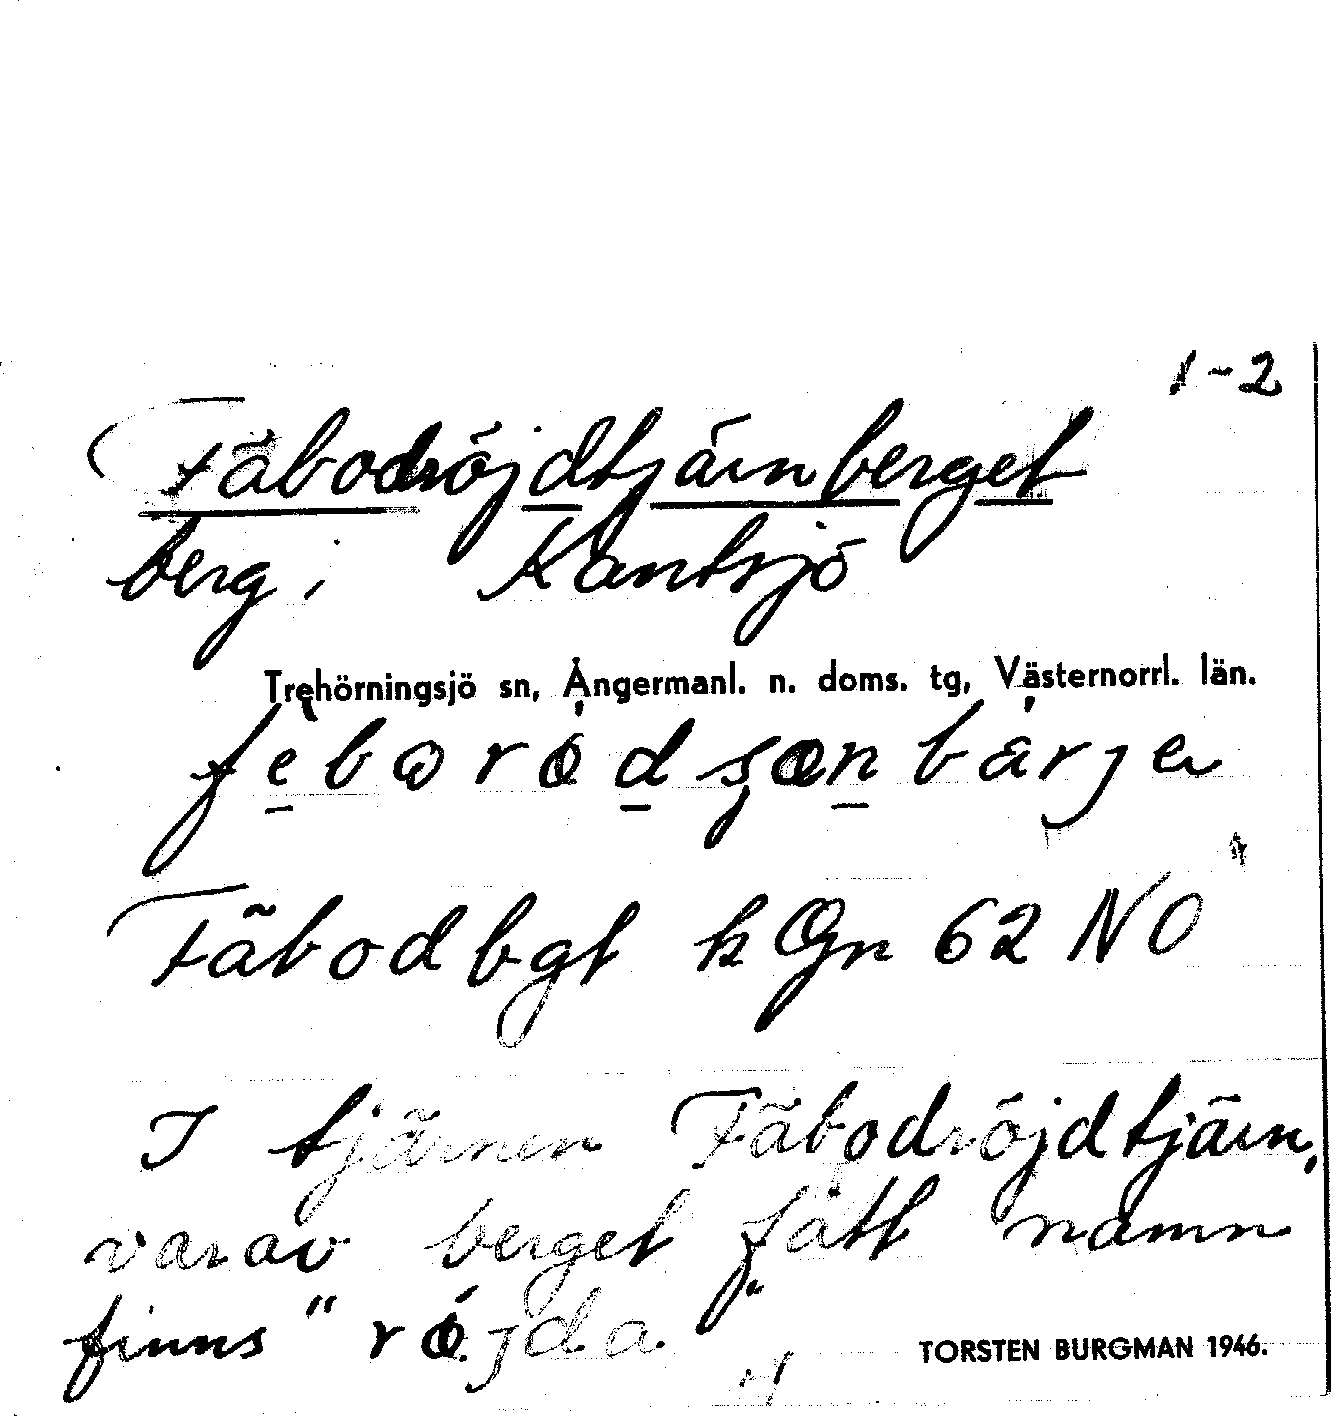 1-2
Fäbodröjdtjärnberget
berg i Kantsjö
Trehörningsjö sn, Ångermanl. n. doms. tg, Västernorrl. län.
Fäbodbgt k Gn 62 NO
I tjärnen Fäbodröjdtjärn,
varav berget fått namn
finns "röjda
TORSTEN BURGMAN 1946.